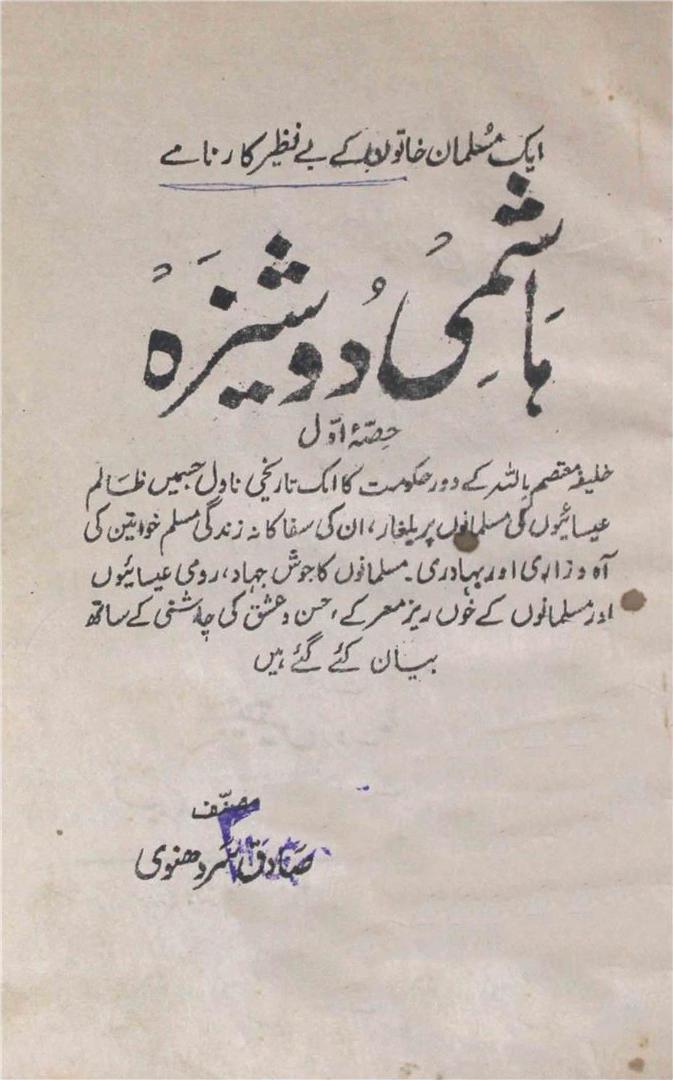 ایک مسلمان خاتون کے بے نظیر کارنامے
ہاشمی دوشیزہ
حصّہ اوّل
خلیفہ معتصم باللہ کے دور حکومت کا ایک تاریخی ناول جسمیں ظالم
عیسائیوں کی مسلمانوں پر یلغار، ان کی سفاکانہ زندگی مسلم خواتین کی
آہ و زاری اور بہادری۔ مسلمانوں کا جوش جہاد، رومی عیسائیوں
اور مسلمانوں کے خوں ریز معرکے، حسن و عشق کی چاشنی کے ساتھ
بیان کئے گئے ہیں
مصنّف
صادق سردھنوی